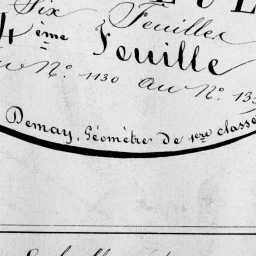 Six Feuilles
4ème Feuille
au N.º 1130 au N.º 135
Demay, Géomètre de 1ère classe